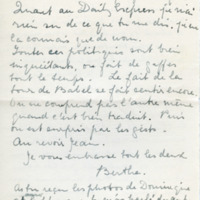 Quant au Daily Express je n'ai
rien su de ce que tu me dis. je ne
le connais que de nom.
Toutes ces politiques sont bien
inquiétantes, on fait de gaffes
tout le temps. Le fait de la
tour de Babel se fait sentir encore.
On ne comprend pas l'autre même
quand c'est bien traduit. Puis
ou est empiré par les gestes.
Au revoir Jean.
Je vous embrasse tout les deux
Berthe.
As tu reçu les photos de Dominique